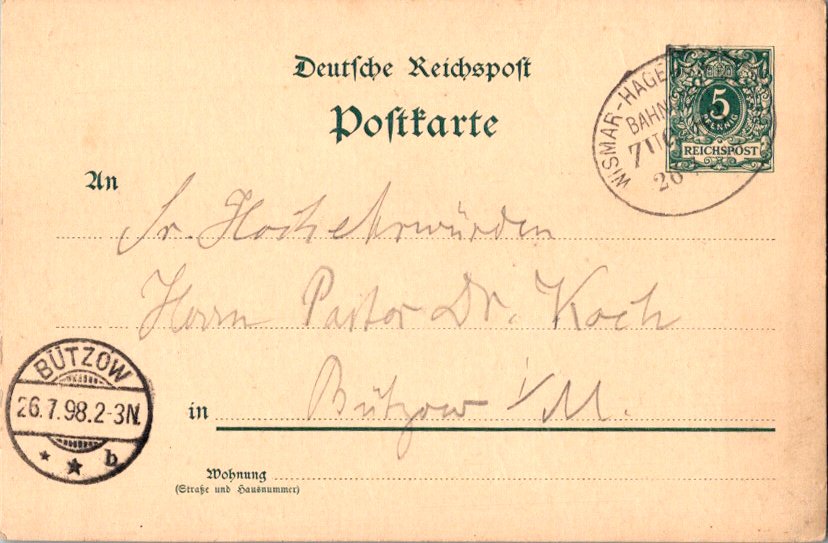 Deutsche Reichspost
Postkarte
WISMAR-HAGE
BAHN
ZUG
7
26
5
PFENNIG
REICHSPOST
An
Sr. Hochehrwürden
Herrn Pastor Dr. Koch
in Bützow i/M.
BÜTZOW
26.7.98.2-3N.
* * b
Wohnung
(Straße und Hausnummer)